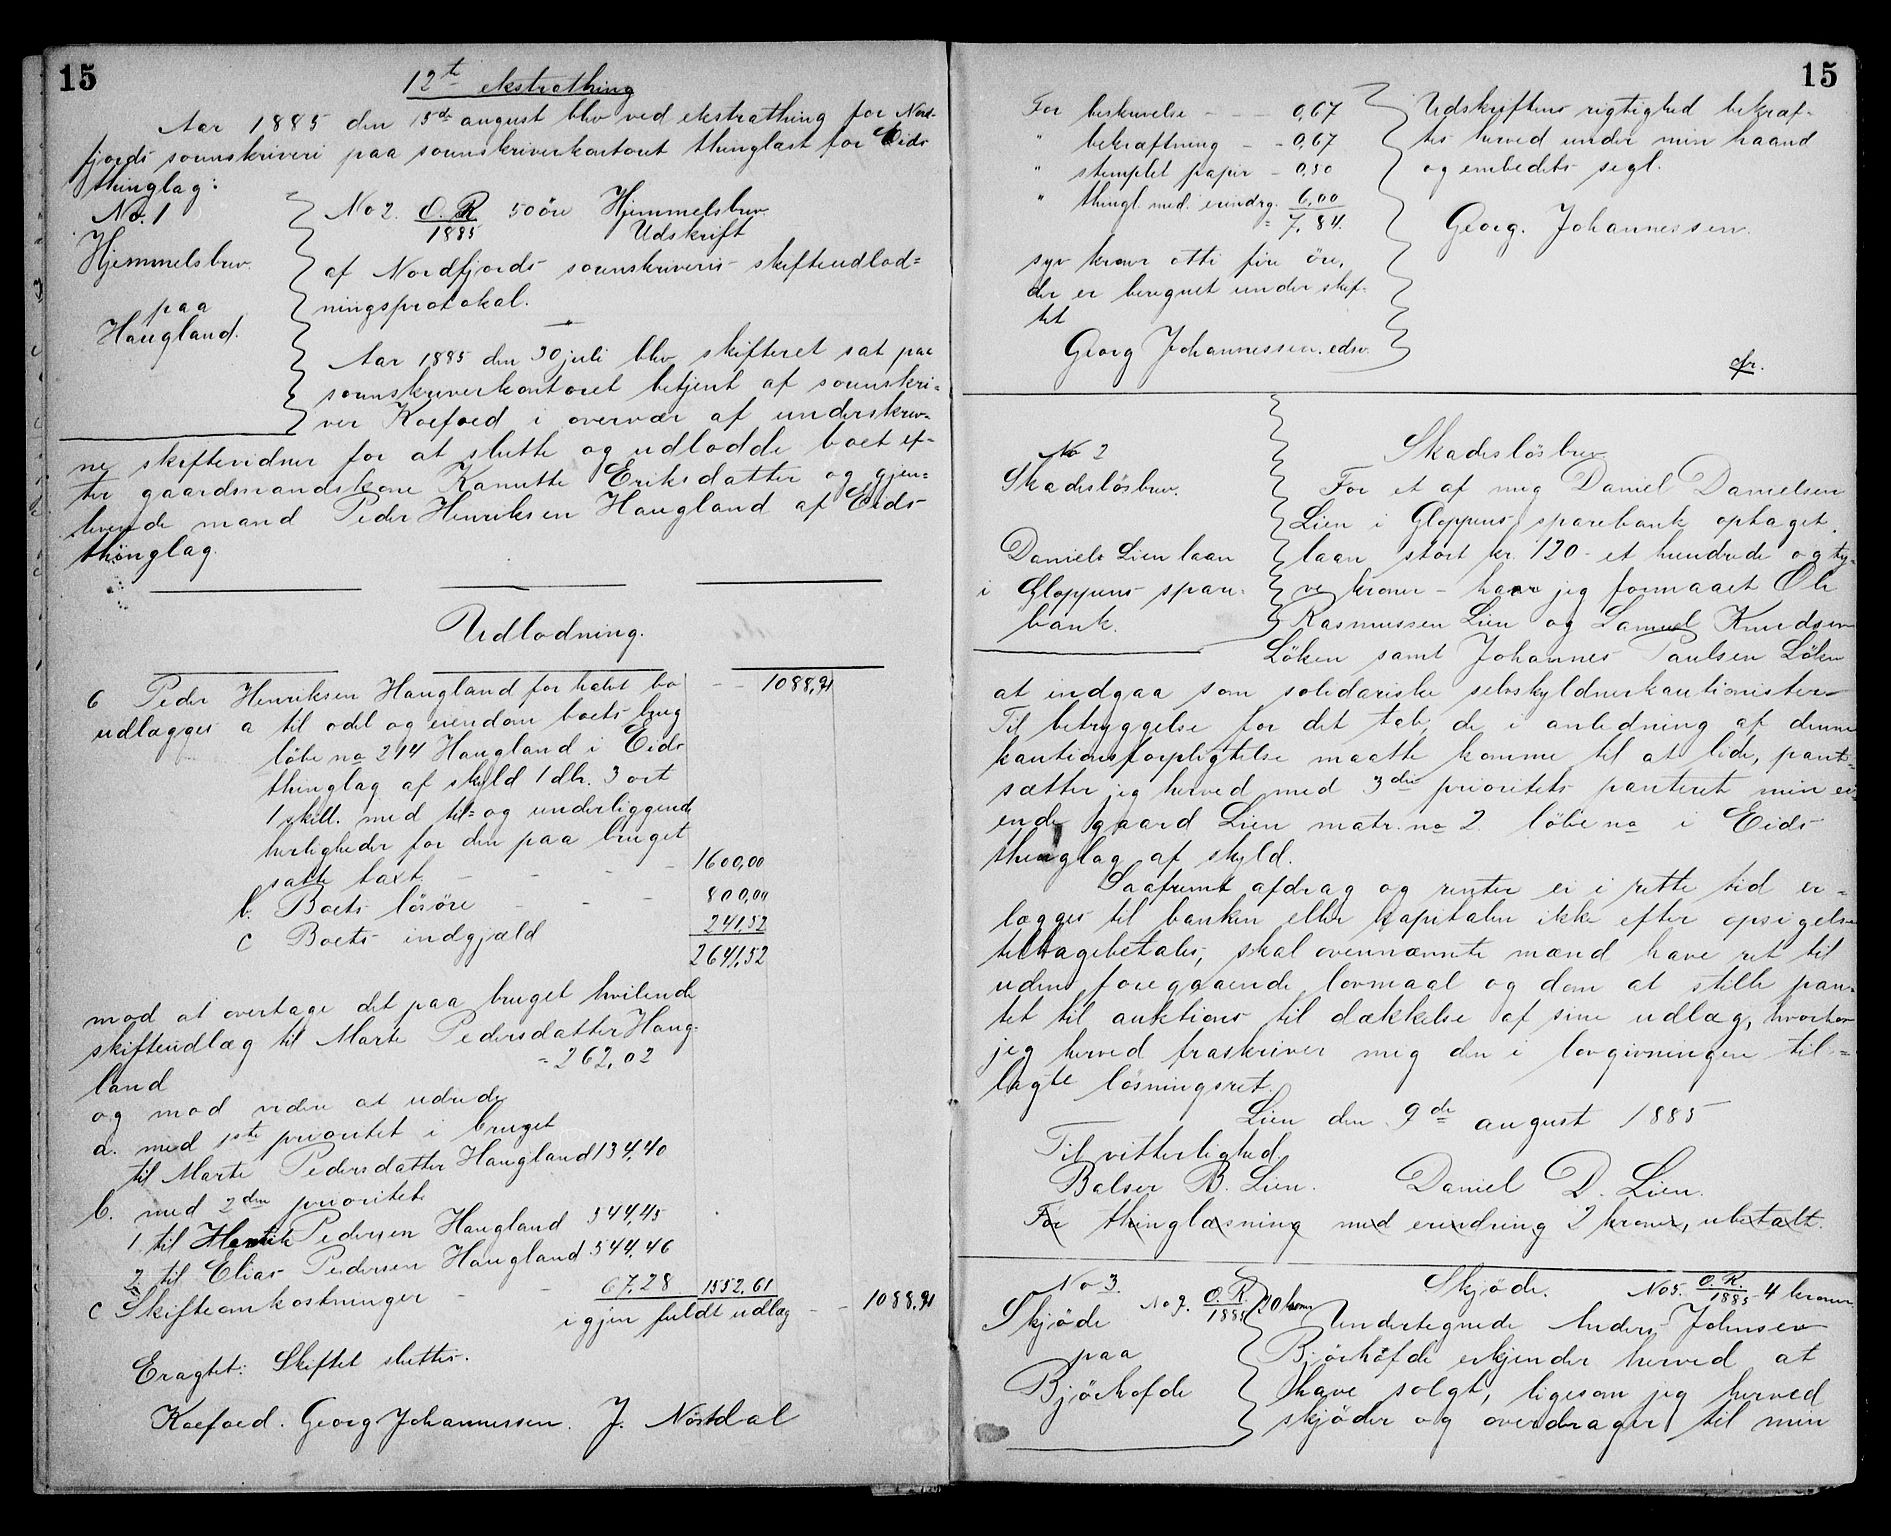 15
12te ekstrathing
Aar 1885 den 15de august blev ved ekstrathing for Nord-
fjords sorenskriveri paa sorenskriverkontoret thinglæst for Eids
thinglag:
No. 1
Hjemmelsbrev
paa
Haugland.
No 2. O.R. 1885 50 öre Hjemmelsbrev.
Udskrift
af Nordfjords sorenskriveris skifteudlod=
ningsprotokol.
Aar 1885 den 30 juli blev skifteret sat paa
sorenskriverkontoret betjent af sorenskri-
ver Koefoed i overvær af underskrev-
ne skiftevidner for at slutte og udlodde boet ef-
ter gaardmandskone Kanutte Eriksdatter og gjen=
levende mand Peder Henriksen Haugland af Eids
thinglag.
Udlodning.
6 Peder Henriksen Haugland for halvt bo - - 1088,91
udlægges a til odel og eiendom boets brug
löbe no 214 Haugland i Eids
thinglag af skyld 1 dlr. 3 ort
1 skill. med til= og underliggende
herligheder for den paa bruget
satte taxt - - - - 1600,00
b. Boets lösöre - - - 800,00
c Boets indgjæld 241,52
2641,52
mod at overtage det paa bruget hvilende
skifteudlæg til Marte Pedersdatter Haug=
land = 262,02
og mod videre at udrede
a. med 1ste prioritet i bruget
til Marte Pedersdatter Haugland 134,40
b. med 2den prioritet
1. til Henrik Pedersen Haugland 544,45
2. til Elias Pedersen Haugland 544,46
c Skifteomkostninger - - 67,28 1552,61
igjen fuldt udlæg - - 1088,91
Eragtet: Skiftet sluttes.
Koefoed. Georg Johannessen. J. Nöstdal
15
For beskrivelse - - - 0,67
" bekræftning - - 0,67
" stemplet papir - 0,50
" thingl. med. erindrg. 6,00
= 7,84.
syv kroner otti fire öre,
der er beregnet under skif-
tet
Georg Johannessen. edsv.
Udskriftens rigtighed bekræf-
tes herved under min haand
og embedets segl.
Georg. Johannessen.
cfr.
No 2
Skadeslösbrev.
Daniels Lien laan
i Gloppens spare-
bank.
Skadeslösbrev
For et af mig Daniel Danielsen
Lien i Gloppens sparebank optaget
laan stort kr. 120 - et hundrede og ty-
ve kroner - har jeg formaaet Ole
Rasmussen Lien og Samuel Knudsen
Löken samt Johannes Paulsen Löken
at indgaa som solidariske selvskyldnerkautionister.
Til betryggelse for det tab, de i anledning af denne
kautionsforpligtelse maatte komme til at lide, pant-
sætter jeg herved med 3die prioritets panteret min ei-
ende gaard Lien matr. no 2 löbe no i Eids
thinglag af skyld.
Saafremt afdrag og renter ei i rette tid er-
lægges til banken eller kapitalen ikke efter opsigelse
tilbagebetales, skal ovennævnte mænd have ret til
uden foregaaende lovmaal og dom at stille pan-
tet til auktions til dækkelse af sine udlæg, hvorhos
jeg herved fraskriver mig den i lovgivningen til=
lagte lösningsret.
Lien den 9de august 1885
Til vitterlighed.
Balser B. Lien. Daniel D. Lien.
For thinglæsning med erindring 2 kroner, ubetalt.
No 3.
Skjöde
paa
Björhofde
No 9. O.R. 1885 20 kroner
Skjöde. No 5. O.R. 1885 4 kroner.
Undertegnede Anders Johnsen
Björhöfde erkjender herved at
have solgt, ligesom jeg herved
skjöder og overdrager til min